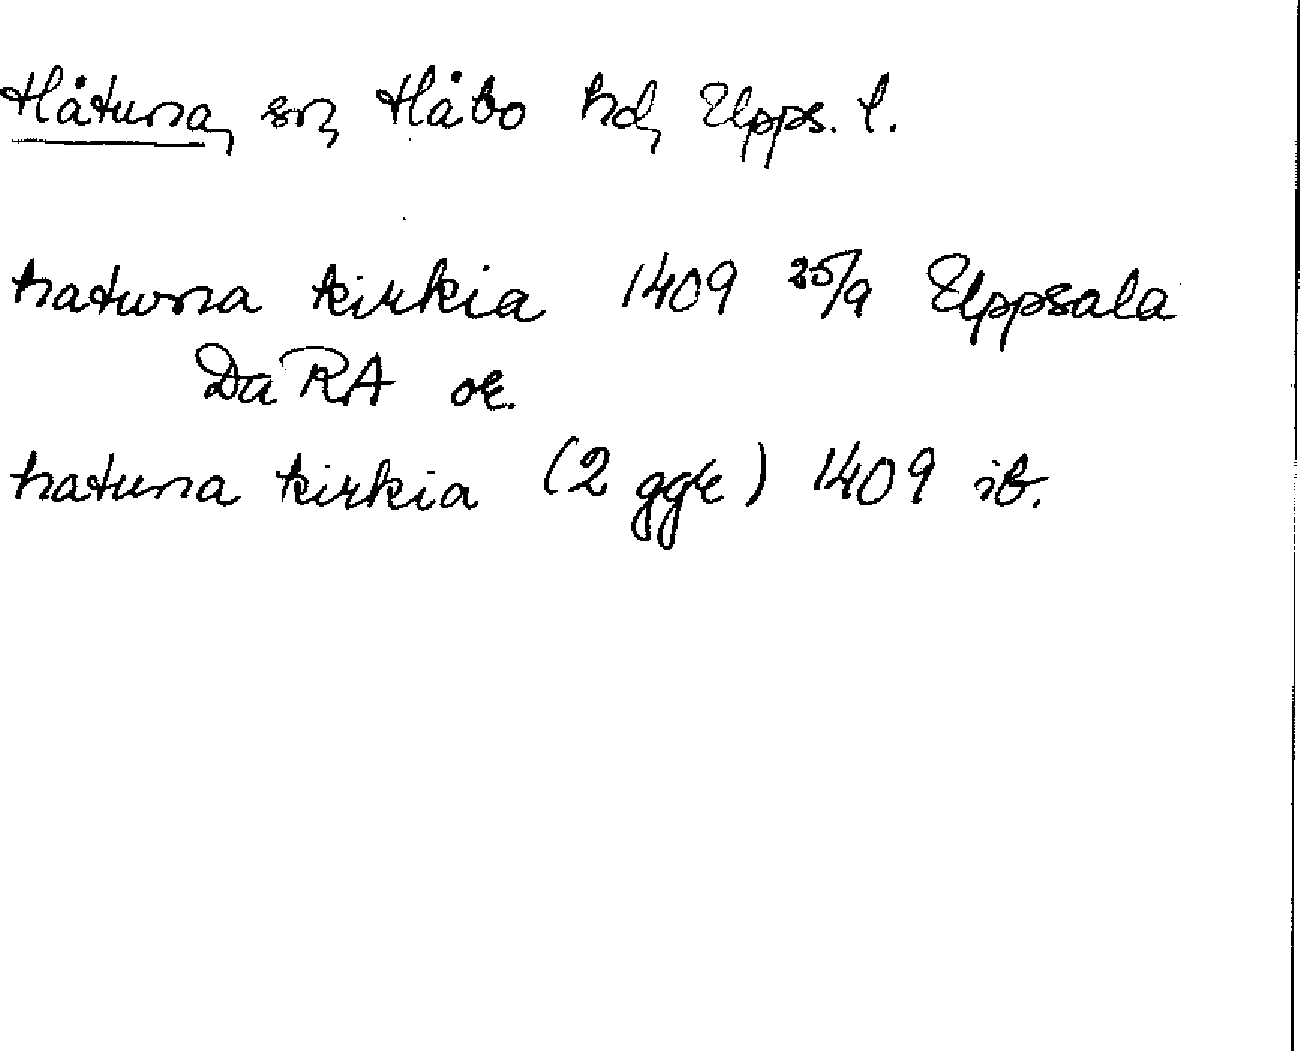 Håtuna, sn, Håbo hd, Upps. l.
hatwna kirkia 1409 25/9 Uppsala
Da RA or.
hatuna kirkia (2 ggr) 1409 ib.